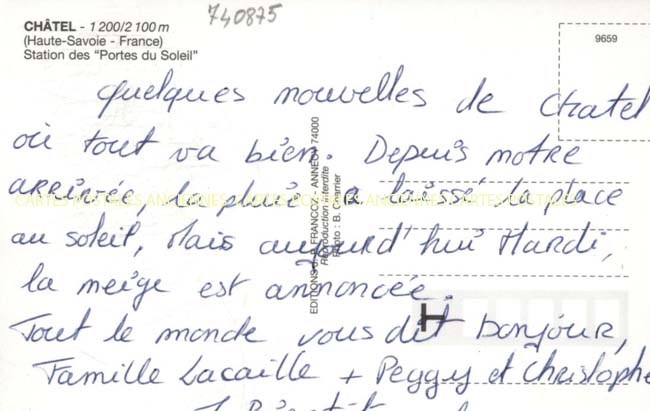 740875
CHÂTEL - 1200/2100 m
(Haute-Savoie - France)
Station des "Portes du Soleil"
9659
Quelques nouvelles de Chatel
où tout va bien. Depuis notre
arrivée, la pluie a laissé la place
au soleil, Mais aujourd'hui Mardi,
la neige est annoncée.
Tout le monde vous dit bonjour,
Famille Lacaille + Peggy et Christophe
EDITIONS FRANCCZ - ANNECY 74000
Reproduction interdite
Photo : B.
CARTES POSTALES ANCIENNES